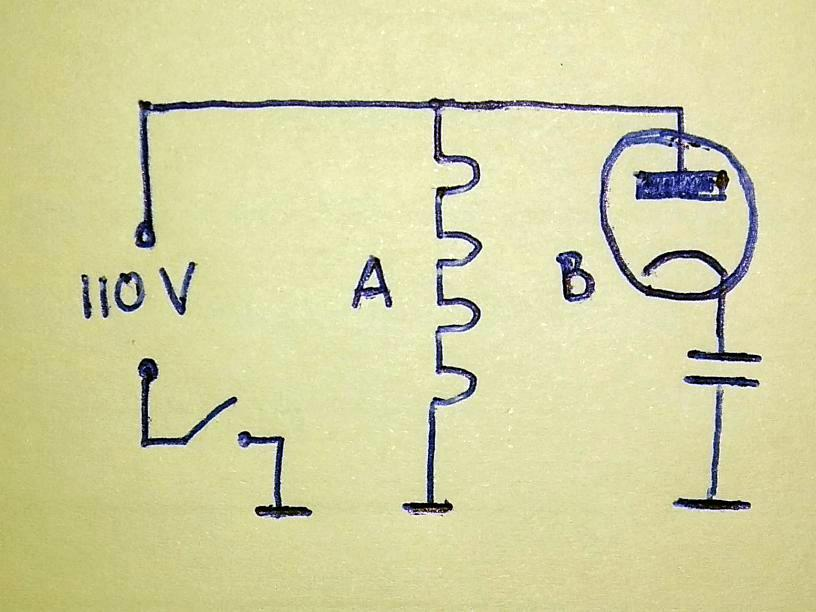 110 V
A
B